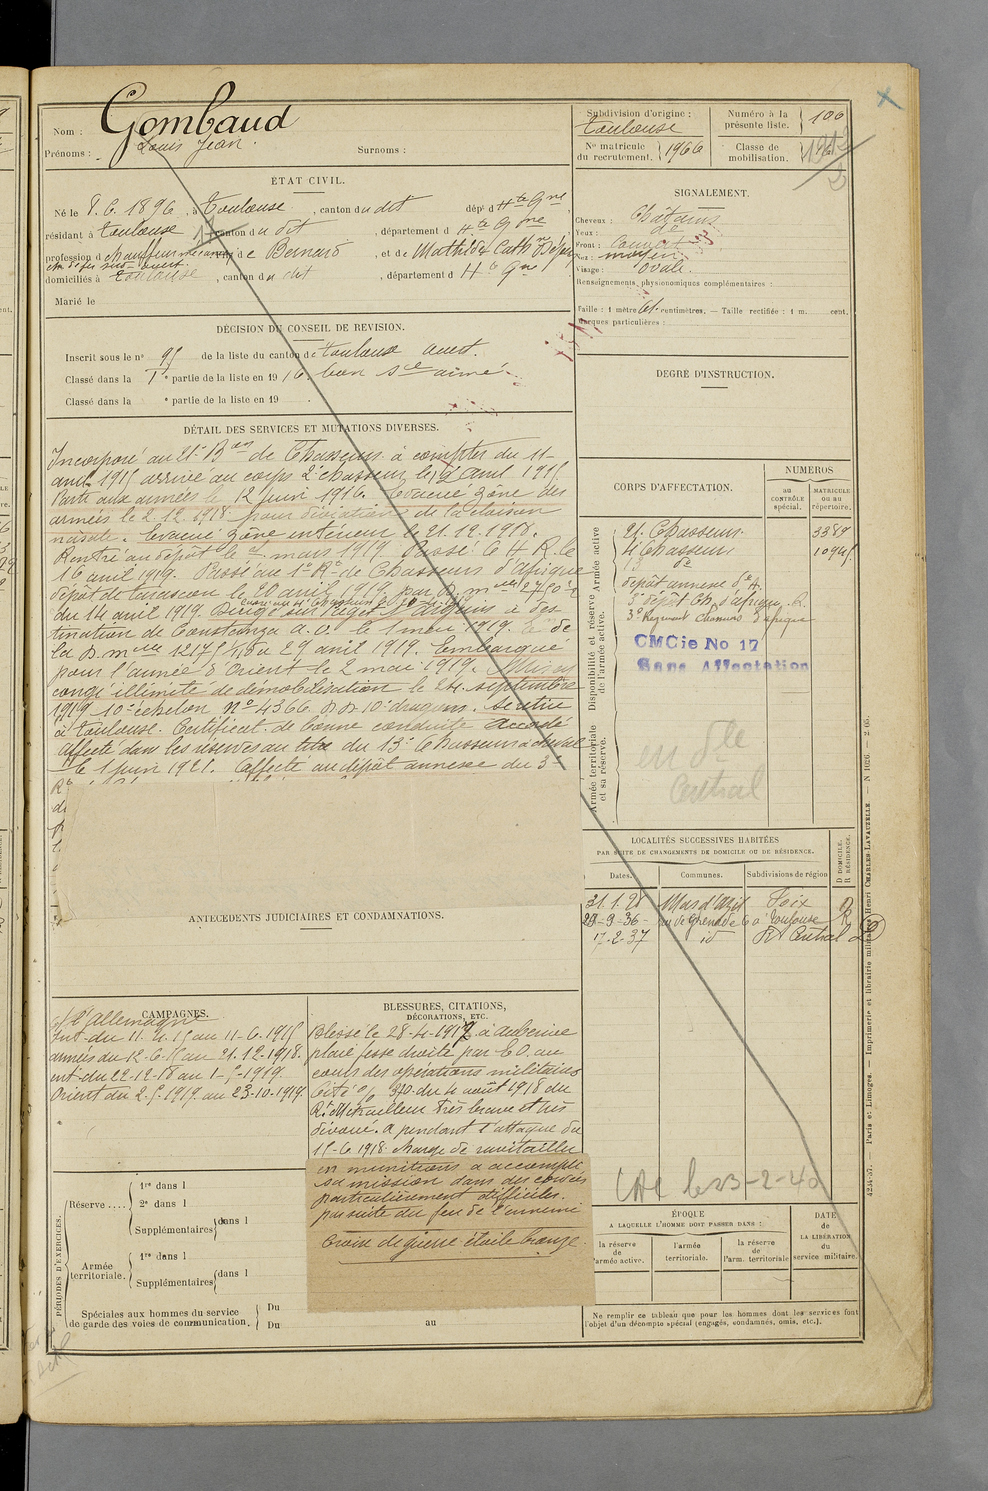 Nom : Gombaud
Prénoms : Louis Jean. Surnoms :
ÉTAT CIVIL.
Né le 8.6.1896, à Toulouse, canton du dit, dépt d Hte Gne
résidant à Toulouse, canton du dit, département d Hte Gne
profession de chauffeur de Bernard, et de Mathilde Cathne
domiciliés à Toulouse, canton du dit, département d Hte Gne
Marié le
DÉCISION DU CONSEIL DE REVISION.
Inscrit sous le n° 95 de la liste du canton de Toulouse ouest.
Classé dans la 1e partie de la liste en 1916. bon sce armé.
Classé dans la e partie de la liste en 19
DÉTAIL DES SERVICES ET MUTATIONS DIVERSES.
Incorporé au 21e Ron de Chasseurs à compter du 11
avril 1915 arrivé au corps 2e chasseur le 12 avril 1915
Parti aux armées le 12 juin 1916. Evacué zône des
armées le 2.12.1918 pour déviation de la cloison
nasale. Evacué zône intérieur le 21.12.1918.
Rentré au dépôt le mars 1919. Passé le 4 R. le
16 avril 1919. Passé au 1er Rt de Chasseurs d'afrique
dépôt de tarascon le 20 avril 1919 par D. mlle 2750
du 14 avril 1919. Dirigé sur à des
tination de Constanza a.o. le 1 mai 1919.
la D. mlle 12175 du 29 avril 1919. Embarqué
pour l'armée d'Orient le 2 mai 1919. Mis en
congé illimité de démobilisation le 24 septembre
1919 10e échelon N° 4366 10e dragons. Se retire
à Toulouse. Certificat de bonne conduite Accordé
Affecté dans les réserves au titre du 13e Chasseurs à cheval
le 1 juin 1921. Affecté au dépôt annexe du 3e
ANTÉCÉDENTS JUDICIAIRES ET CONDAMNATIONS.
CAMPAGNES.
c/ l'allemagne
Int. du 11.4.15 au 11-6.1915
armées du 12-6-15 au 21.12.1918.
int. du 22-12-18 au 1-5-1919
Orient du 2.5.1919 au 23-10-1919.
BLESSURES, CITATIONS,
DÉCORATIONS, ETC.
Blessé le 28-4-1917 à Auberive
plaie fesse droite par E.O. au
cours des opérations militaires
Cité o/o 320 du 4 août 1918 du
Rt Mitrailleur très brave et très
dévoué. A pendant l'attaque du
15-6 1918 chargé de ravitailler
en munitions a accompli
sa mission dans des conditions
particulièrement difficiles.
par suite du feu de l'ennemi
Croix de guerre étoile bronze
PÉRIODES D'EXERCICES.
Réserve ....
1re dans l
2e dans l
Supplémentaires dans l
Armée territoriale.
1re dans l
Supplémentaires dans l
Spéciales aux hommes du service
de garde des voies de communication.
Du
Du au
Subdivision d'origine :
Toulouse
Numéro à la présente liste. 100
N° matricule du recrutement. 1966
Classe de mobilisation.
SIGNALEMENT.
Cheveux : Châtains
Yeux : do
Front : couvert
Nez : moyen
Visage : ovale.
Renseignements physionomiques complémentaires :
Taille : 1 mètre 61 centimètres. — Taille rectifiée : 1 m. cent.
Marques particulières :
DEGRÉ D'INSTRUCTION.
CORPS D'AFFECTATION.
NUMÉROS
au CONTRÔLE spécial.
MATRICULE ou au répertoire.
Disponibilité et réserve de l'armée active. Armée active
21. Chasseurs. 3389
4e Chasseurs 10945
13 do
dépôt annexe
5e dépôt Ch. d'afrique
3e Régiment Chasseurs d'afrique
CMCie No 17
Sans Affectation
Armée territoriale et sa réserve.
en dle
Central
LOCALITÉS SUCCESSIVES HABITÉES
PAR SUITE DE CHANGEMENTS DE DOMICILE OU DE RÉSIDENCE.
Dates. Communes. Subdivisions de région D DOMICILE. R RÉSIDENCE.
21.1.28 Mas d'Azil Foix
29-9-36 rue de Grenade 6 à Toulouse R
17-2-37 id Rt Central
CAC le 23-2-40
ÉPOQUE
A LAQUELLE L'HOMME DOIT PASSER DANS :
la réserve de l'armée active.
l'armée territoriale.
la réserve de l'arm. territoriale.
DATE de LA LIBÉRATION du service militaire.
Ne remplir ce tableau que pour les hommes dont les services font
l'objet d'un décompte spécial (engagés, condamnés, omis, etc.).
4234-37. — Paris et Limoges. — Imprimerie et librairie militaires Henri CHARLES-LAVAUZELLE.